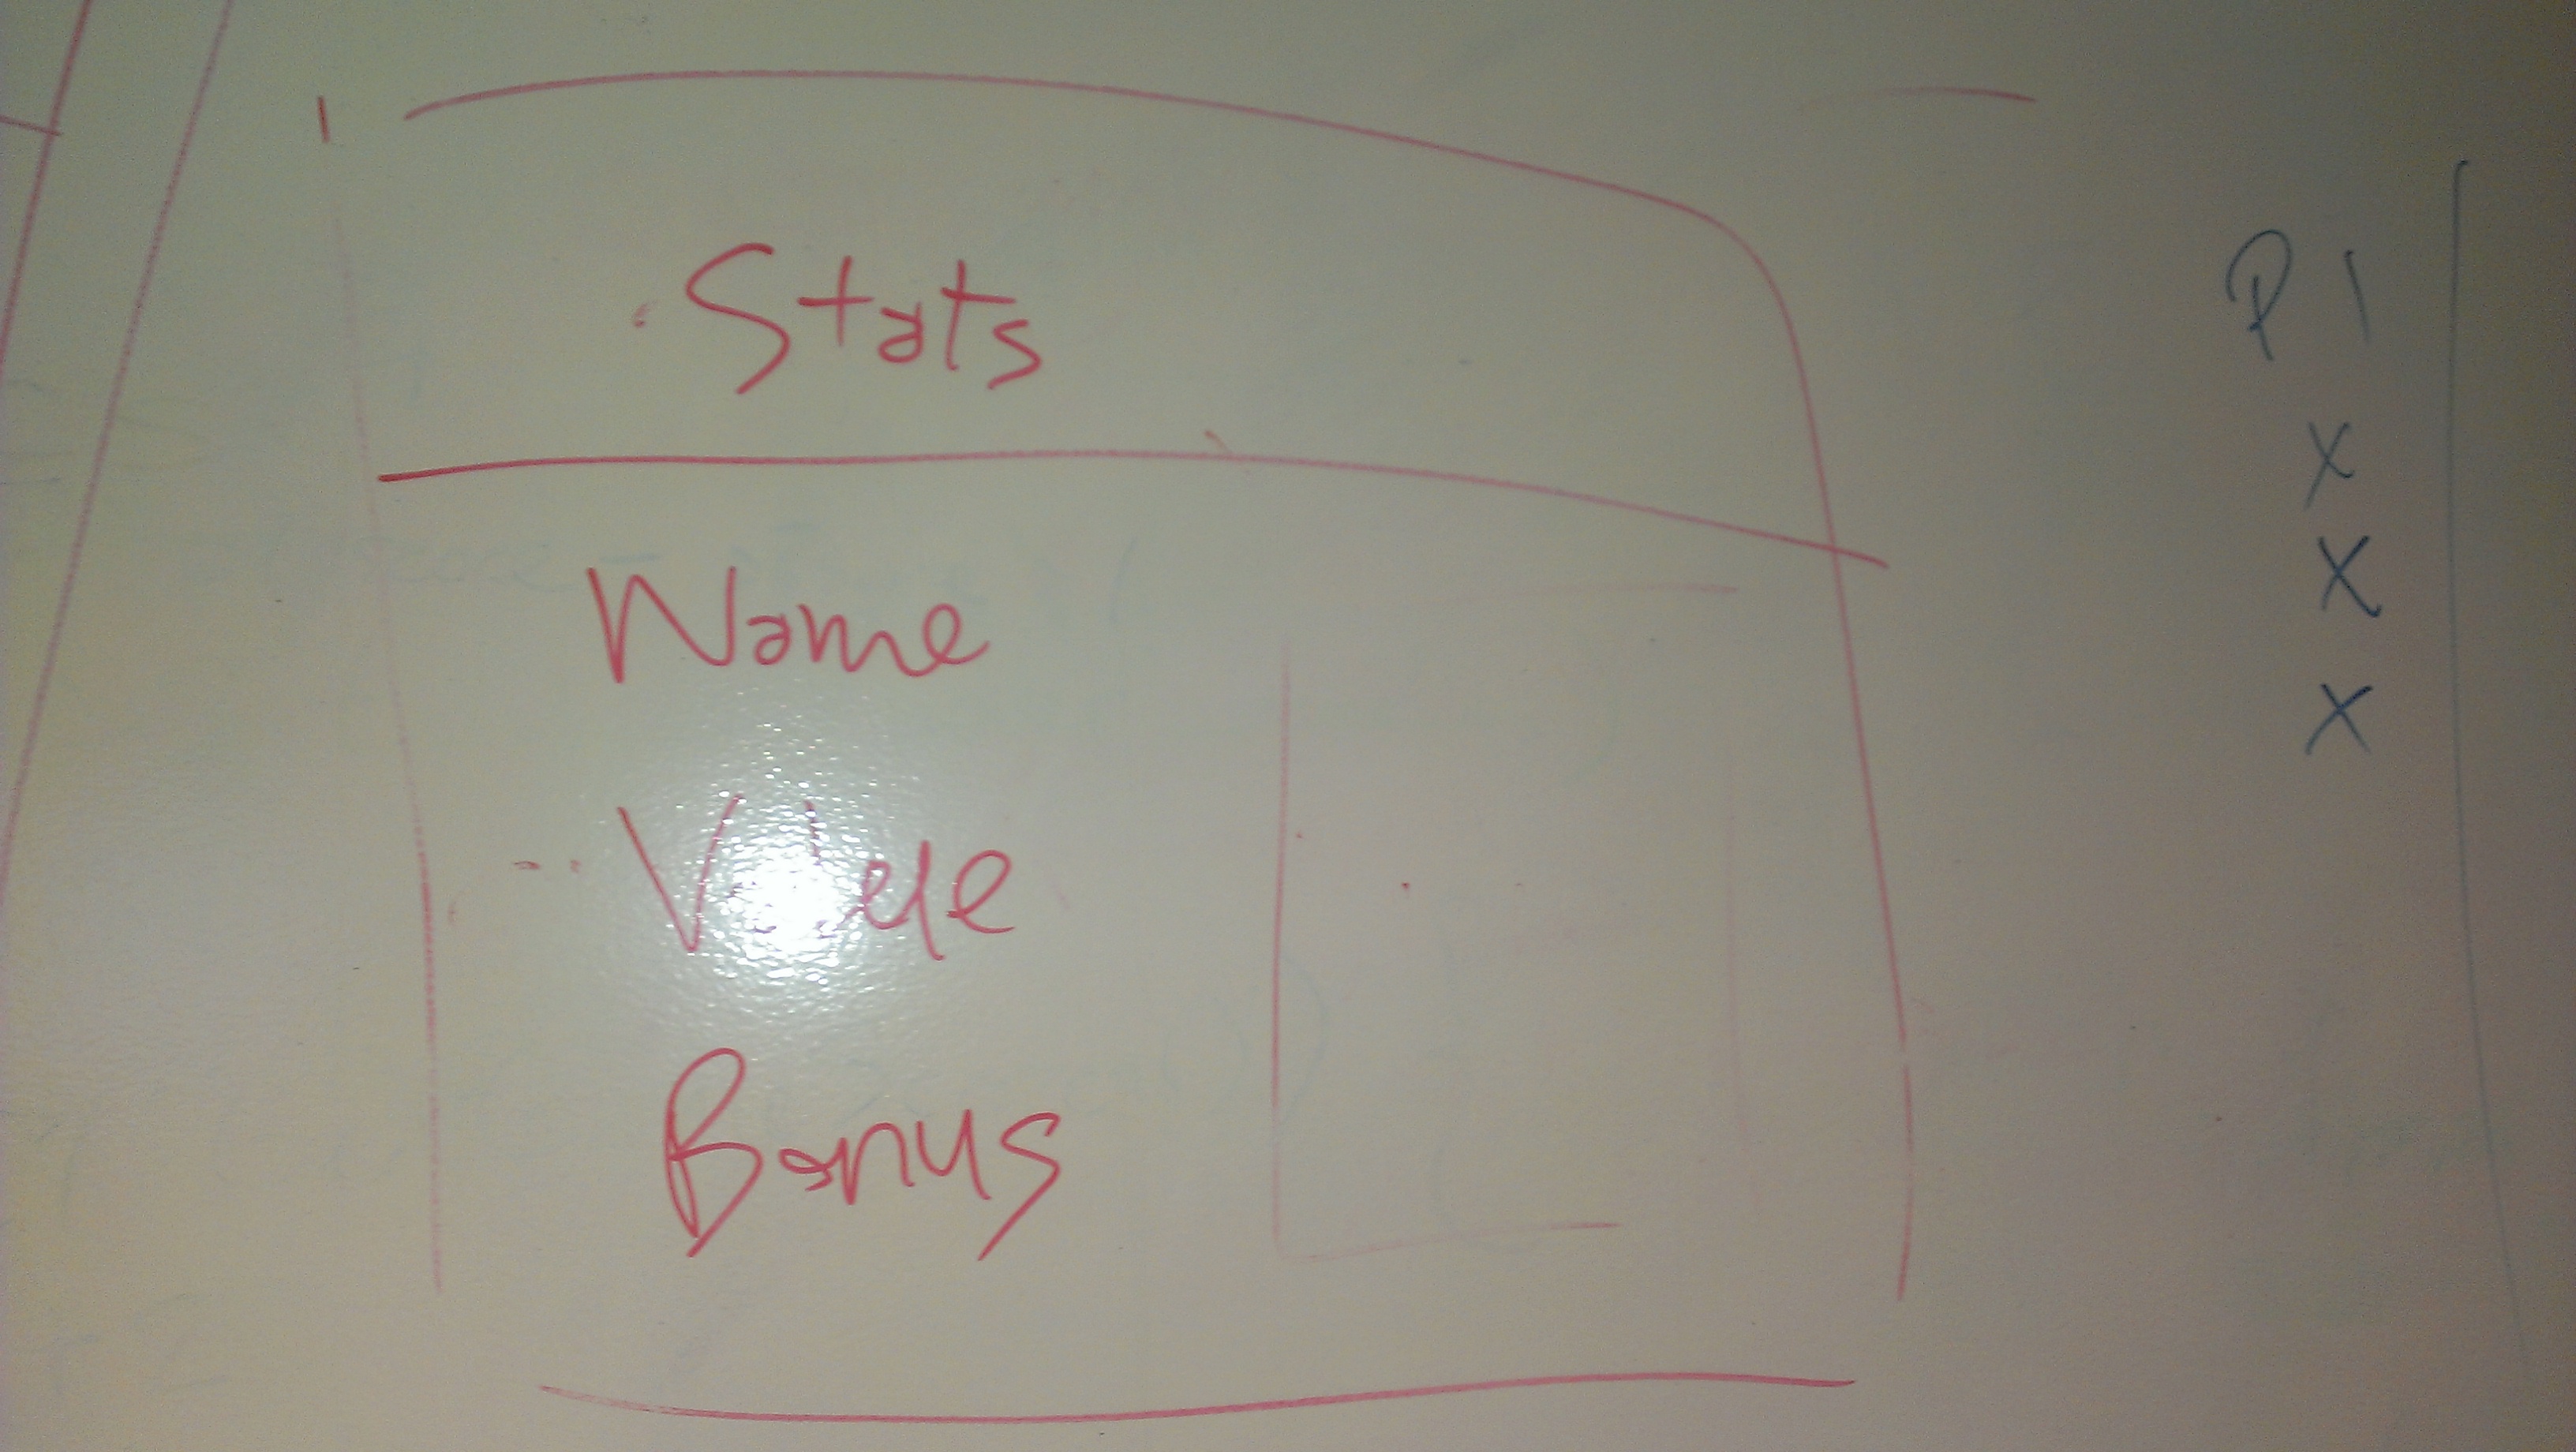 Stats
Name
Value
Bonus
P1
X
X
X